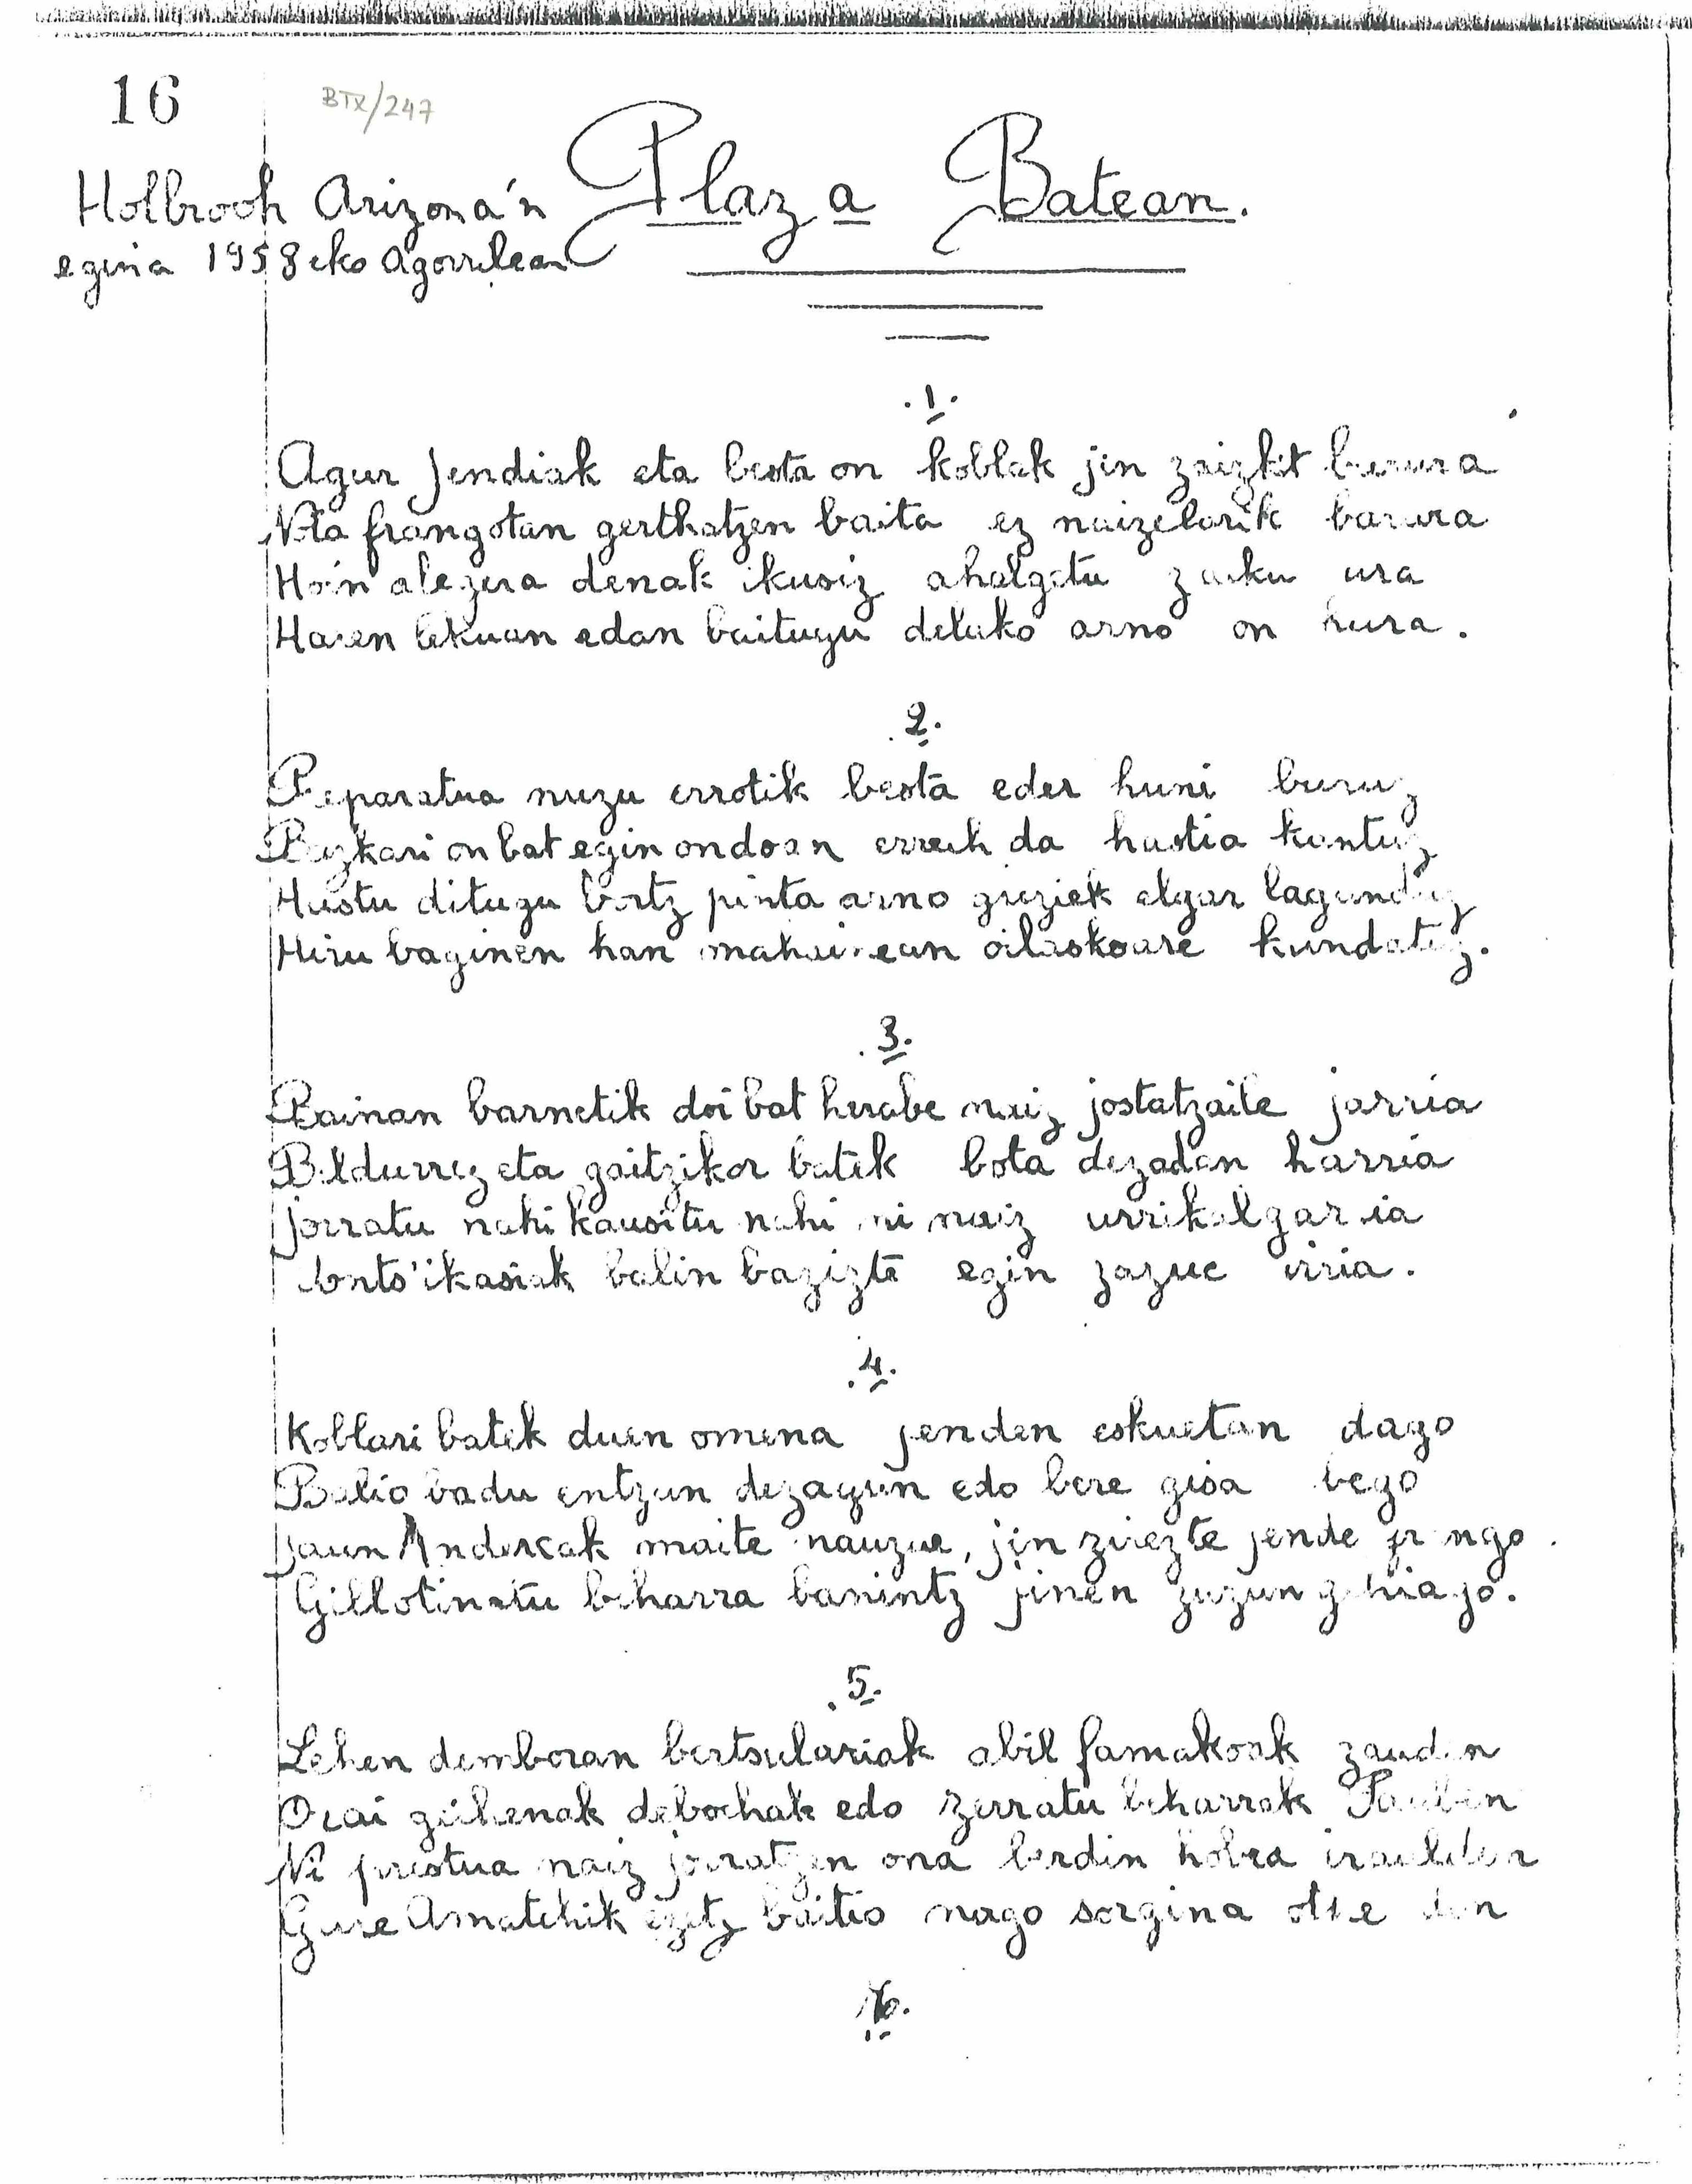 16
BTX/247
Holbrook Arizona'n Plaza Batean.
egina 1958eko Agorrilean
.1.
Agur Jendiak eta besta on koblak jin zaizkt burura
Nota frangotan gerthatzen baita ez naizelarik barura
Hoin alegera denak ikusiz ahalgetu zaiku ura
Haren lekuan edan baitugu delako arno on hura.
.2.
Preparatua nuzu errotik besta eder huni buruz
Bazkari on bat egin ondoan errech da hastia kantuz
Hustu ditugu bortz pinta arno guziek elgar lagunduz
Hiru baginen han mahainean oilaskoare kundatuz.
.3.
Bainan barnetik doi bat herabe naiz jostatzaile jarria
Beldurrez eta gaitzikor batek bota dezadan harria
jorratu nahi kausitu nahi ni naiz urrikalgarria
Unts'ikasiak balin bazizte egin zazue irria.
.4.
Koblari batek duen omena jenden eskuetan dago
Balio badu entzun dezagun edo bere gisa bego
Jaun Andereak maite nauzue, jin zirezte jende frango.
Gillotinatu beharra banintz jinen zuzun gehiago.
.5.
Lehen demboran bertsulariak abil famakoak zauden
Orai geihenak debochak edo zerratu beharrak Pauben
Ni prestua naiz jorratzen ona berdin hobea
Gure Amatchik ezetz baitio nago sorgina othe den
.6.